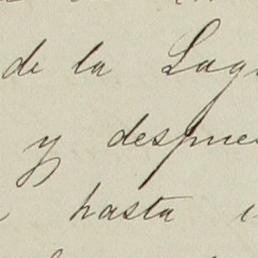 de la Lag
y despues
hasta